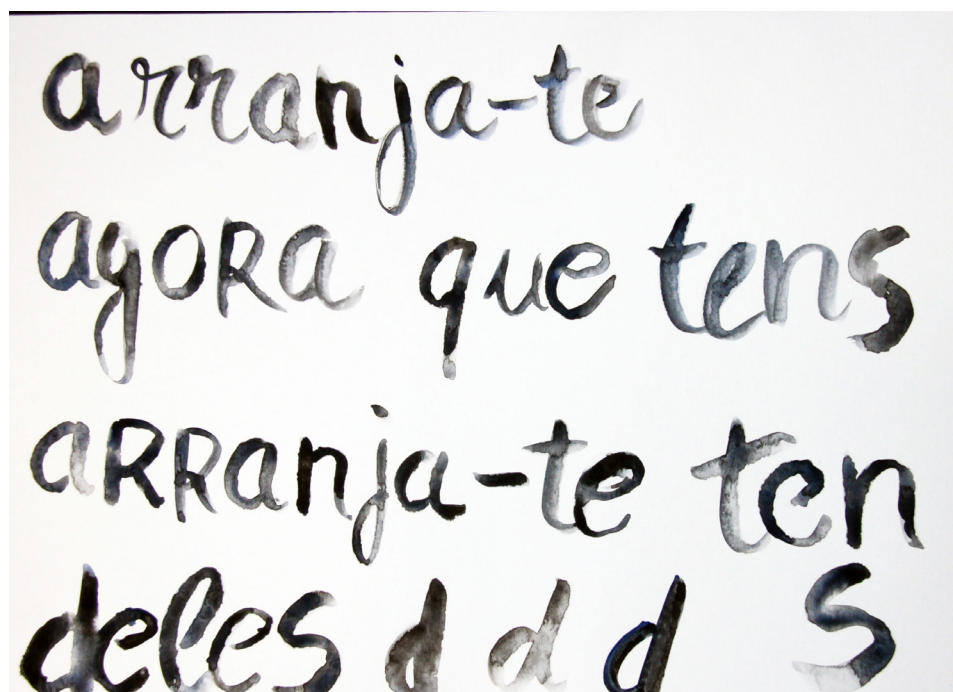 arranja-te
agoRa que tens
aRRanja-te ten
deles d d d s